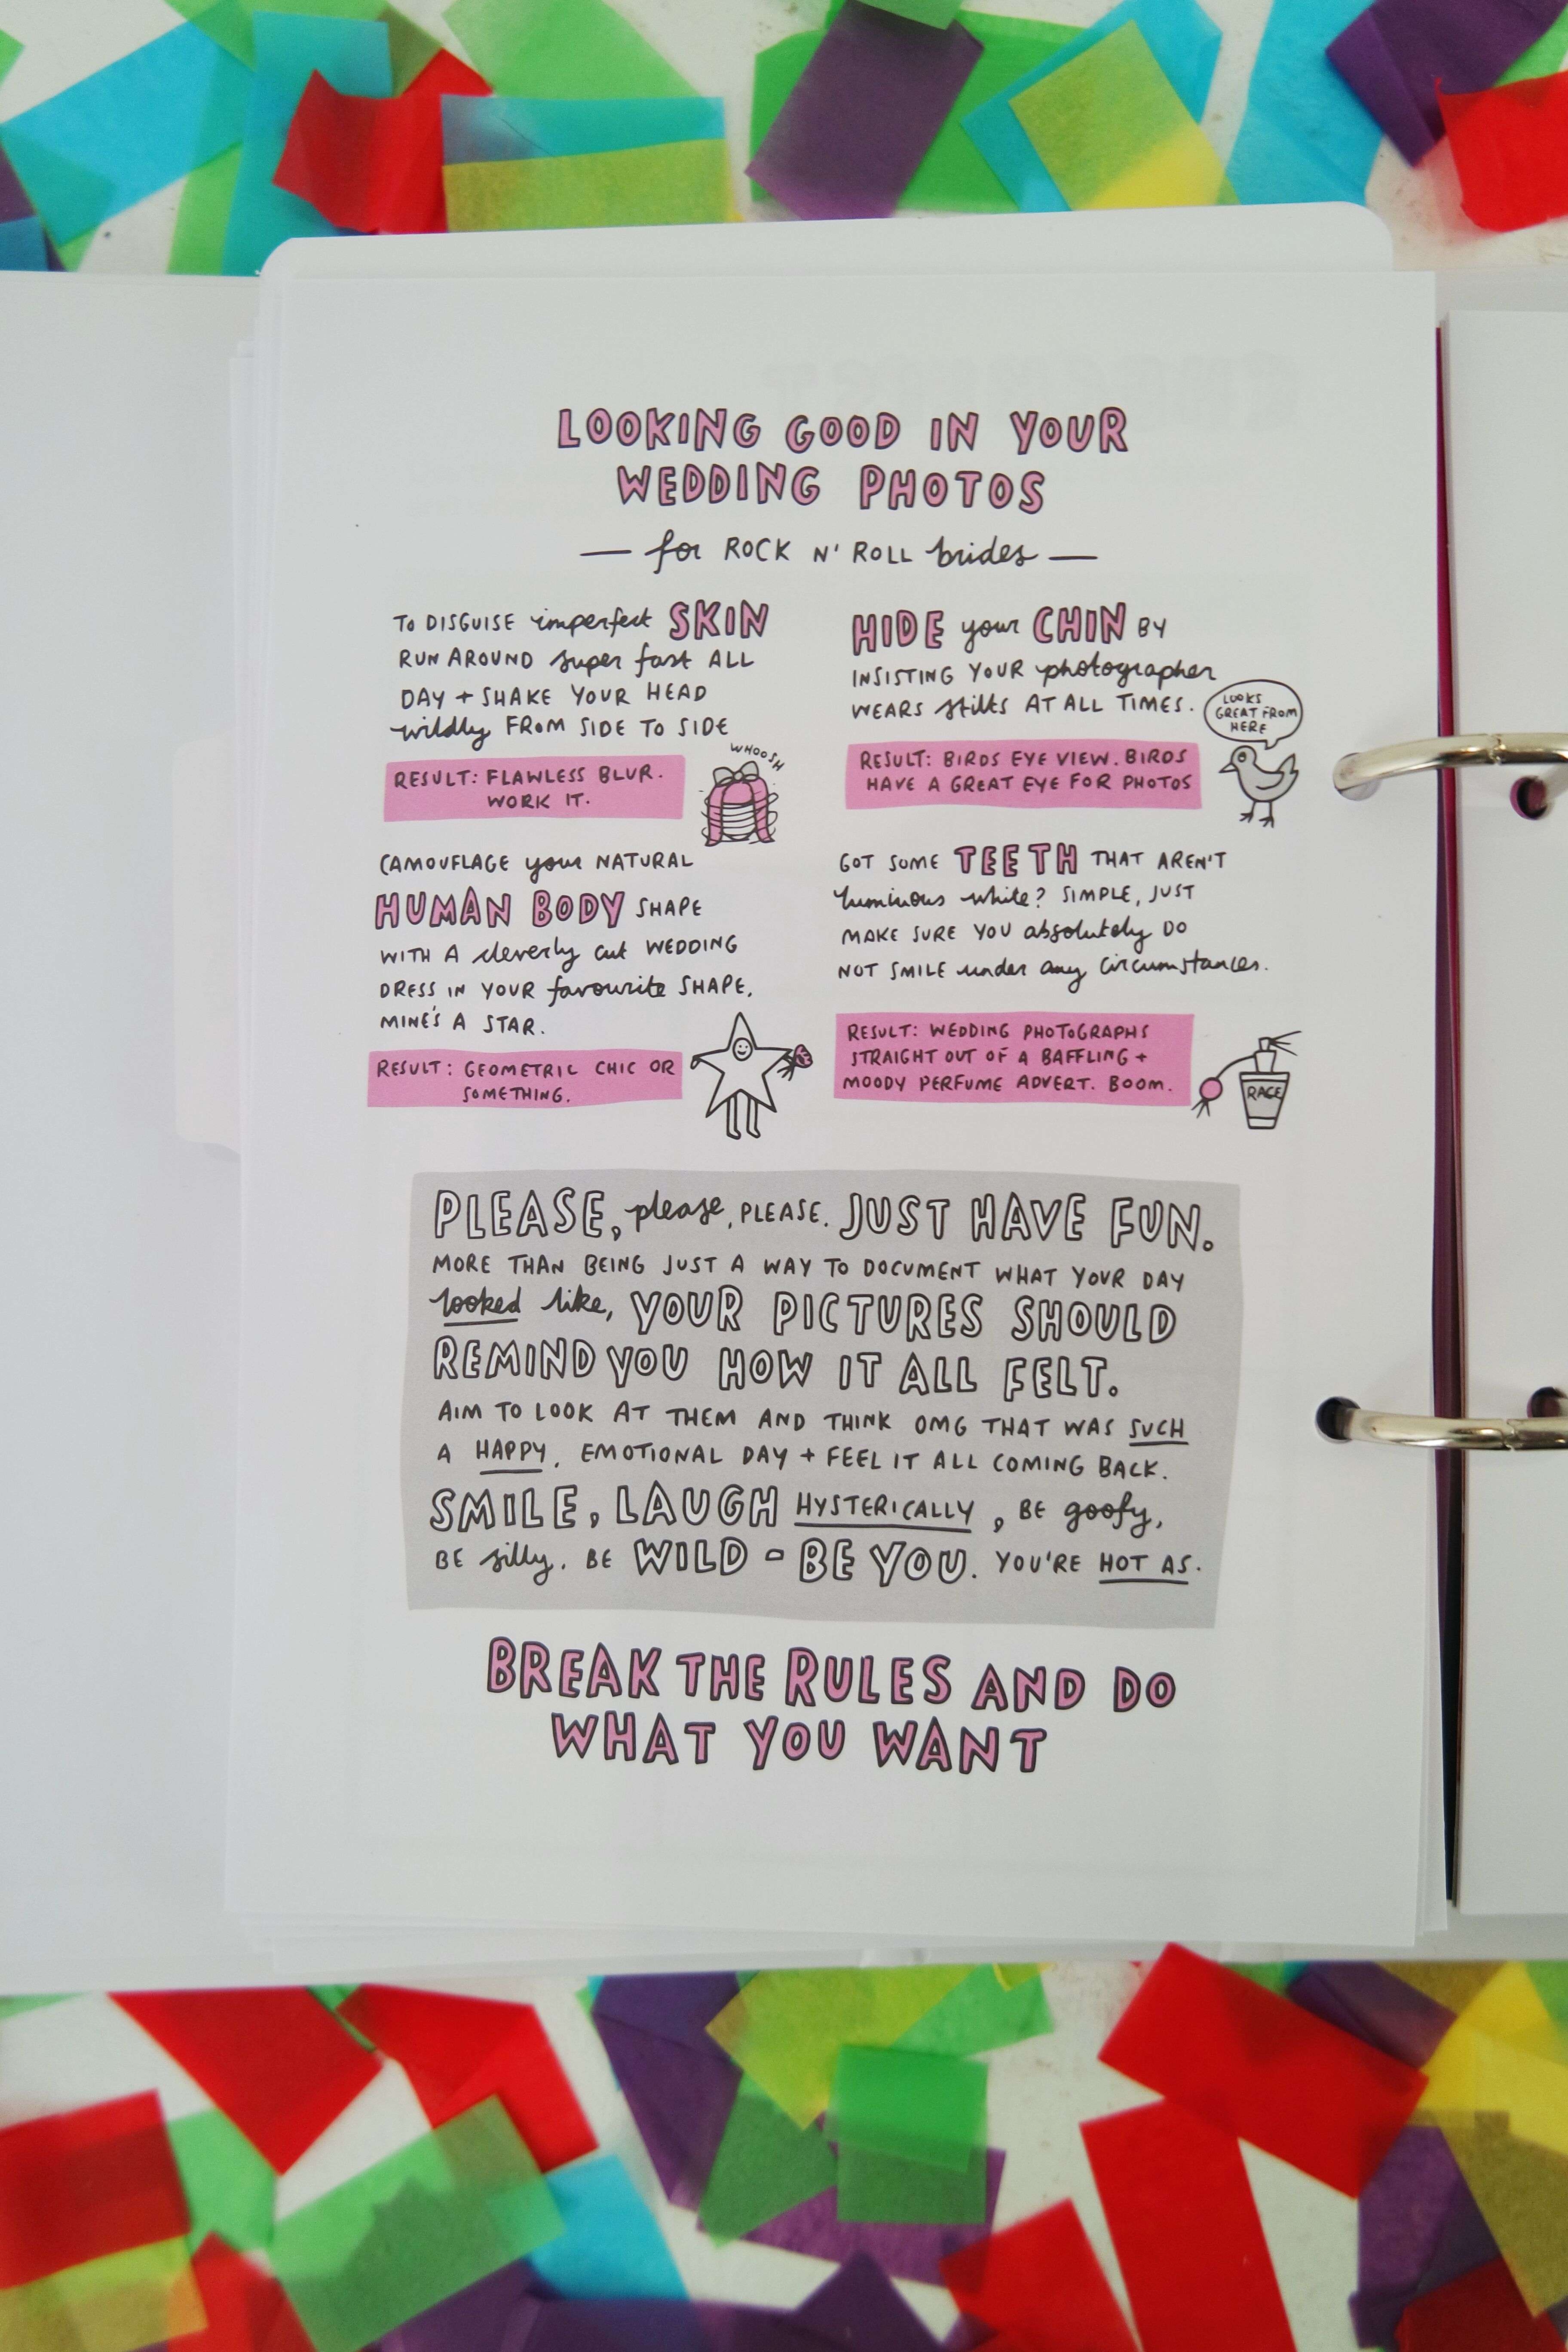 LOOKING GOOD IN YOUR
WEDDING PHOTOS
— for ROCK N' ROLL brides —
TO DISGUISE imperfect SKIN
RUN AROUND super fast ALL
DAY + SHAKE YOUR HEAD
wildly FROM SIDE TO SIDE
WHOOSH
RESULT: FLAWLESS BLUR.
WORK IT.
CAMOUFLAGE your NATURAL
HUMAN BODY SHAPE
WITH A cleverly cut WEDDING
DRESS IN YOUR favourite SHAPE.
MINE'S A STAR.
RESULT: GEOMETRIC CHIC OR
SOMETHING.
HIDE your CHIN BY
INSISTING YOUR photographer
WEARS stilts AT ALL TIMES.
LOOKS
GREAT FROM
HERE
RESULT: BIRDS EYE VIEW. BIRDS
HAVE A GREAT EYE FOR PHOTOS
GOT SOME TEETH THAT AREN'T
luminous white? SIMPLE, JUST
MAKE SURE YOU absolutely DO
NOT SMILE under any circumstances.
RESULT: WEDDING PHOTOGRAPHS
STRAIGHT OUT OF A BAFFLING +
MOODY PERFUME ADVERT. BOOM.
RAGE
PLEASE, please, PLEASE. JUST HAVE FUN.
MORE THAN BEING JUST A WAY TO DOCUMENT WHAT YOUR DAY
looked like, YOUR PICTURES SHOULD
REMIND YOU HOW IT ALL FELT.
AIM TO LOOK AT THEM AND THINK OMG THAT WAS SUCH
A HAPPY, EMOTIONAL DAY + FEEL IT ALL COMING BACK.
SMILE, LAUGH HYSTERICALLY, BE goofy,
BE silly. BE WILD - BE YOU. YOU'RE HOT AS.
BREAK THE RULES AND DO
WHAT YOU WANT